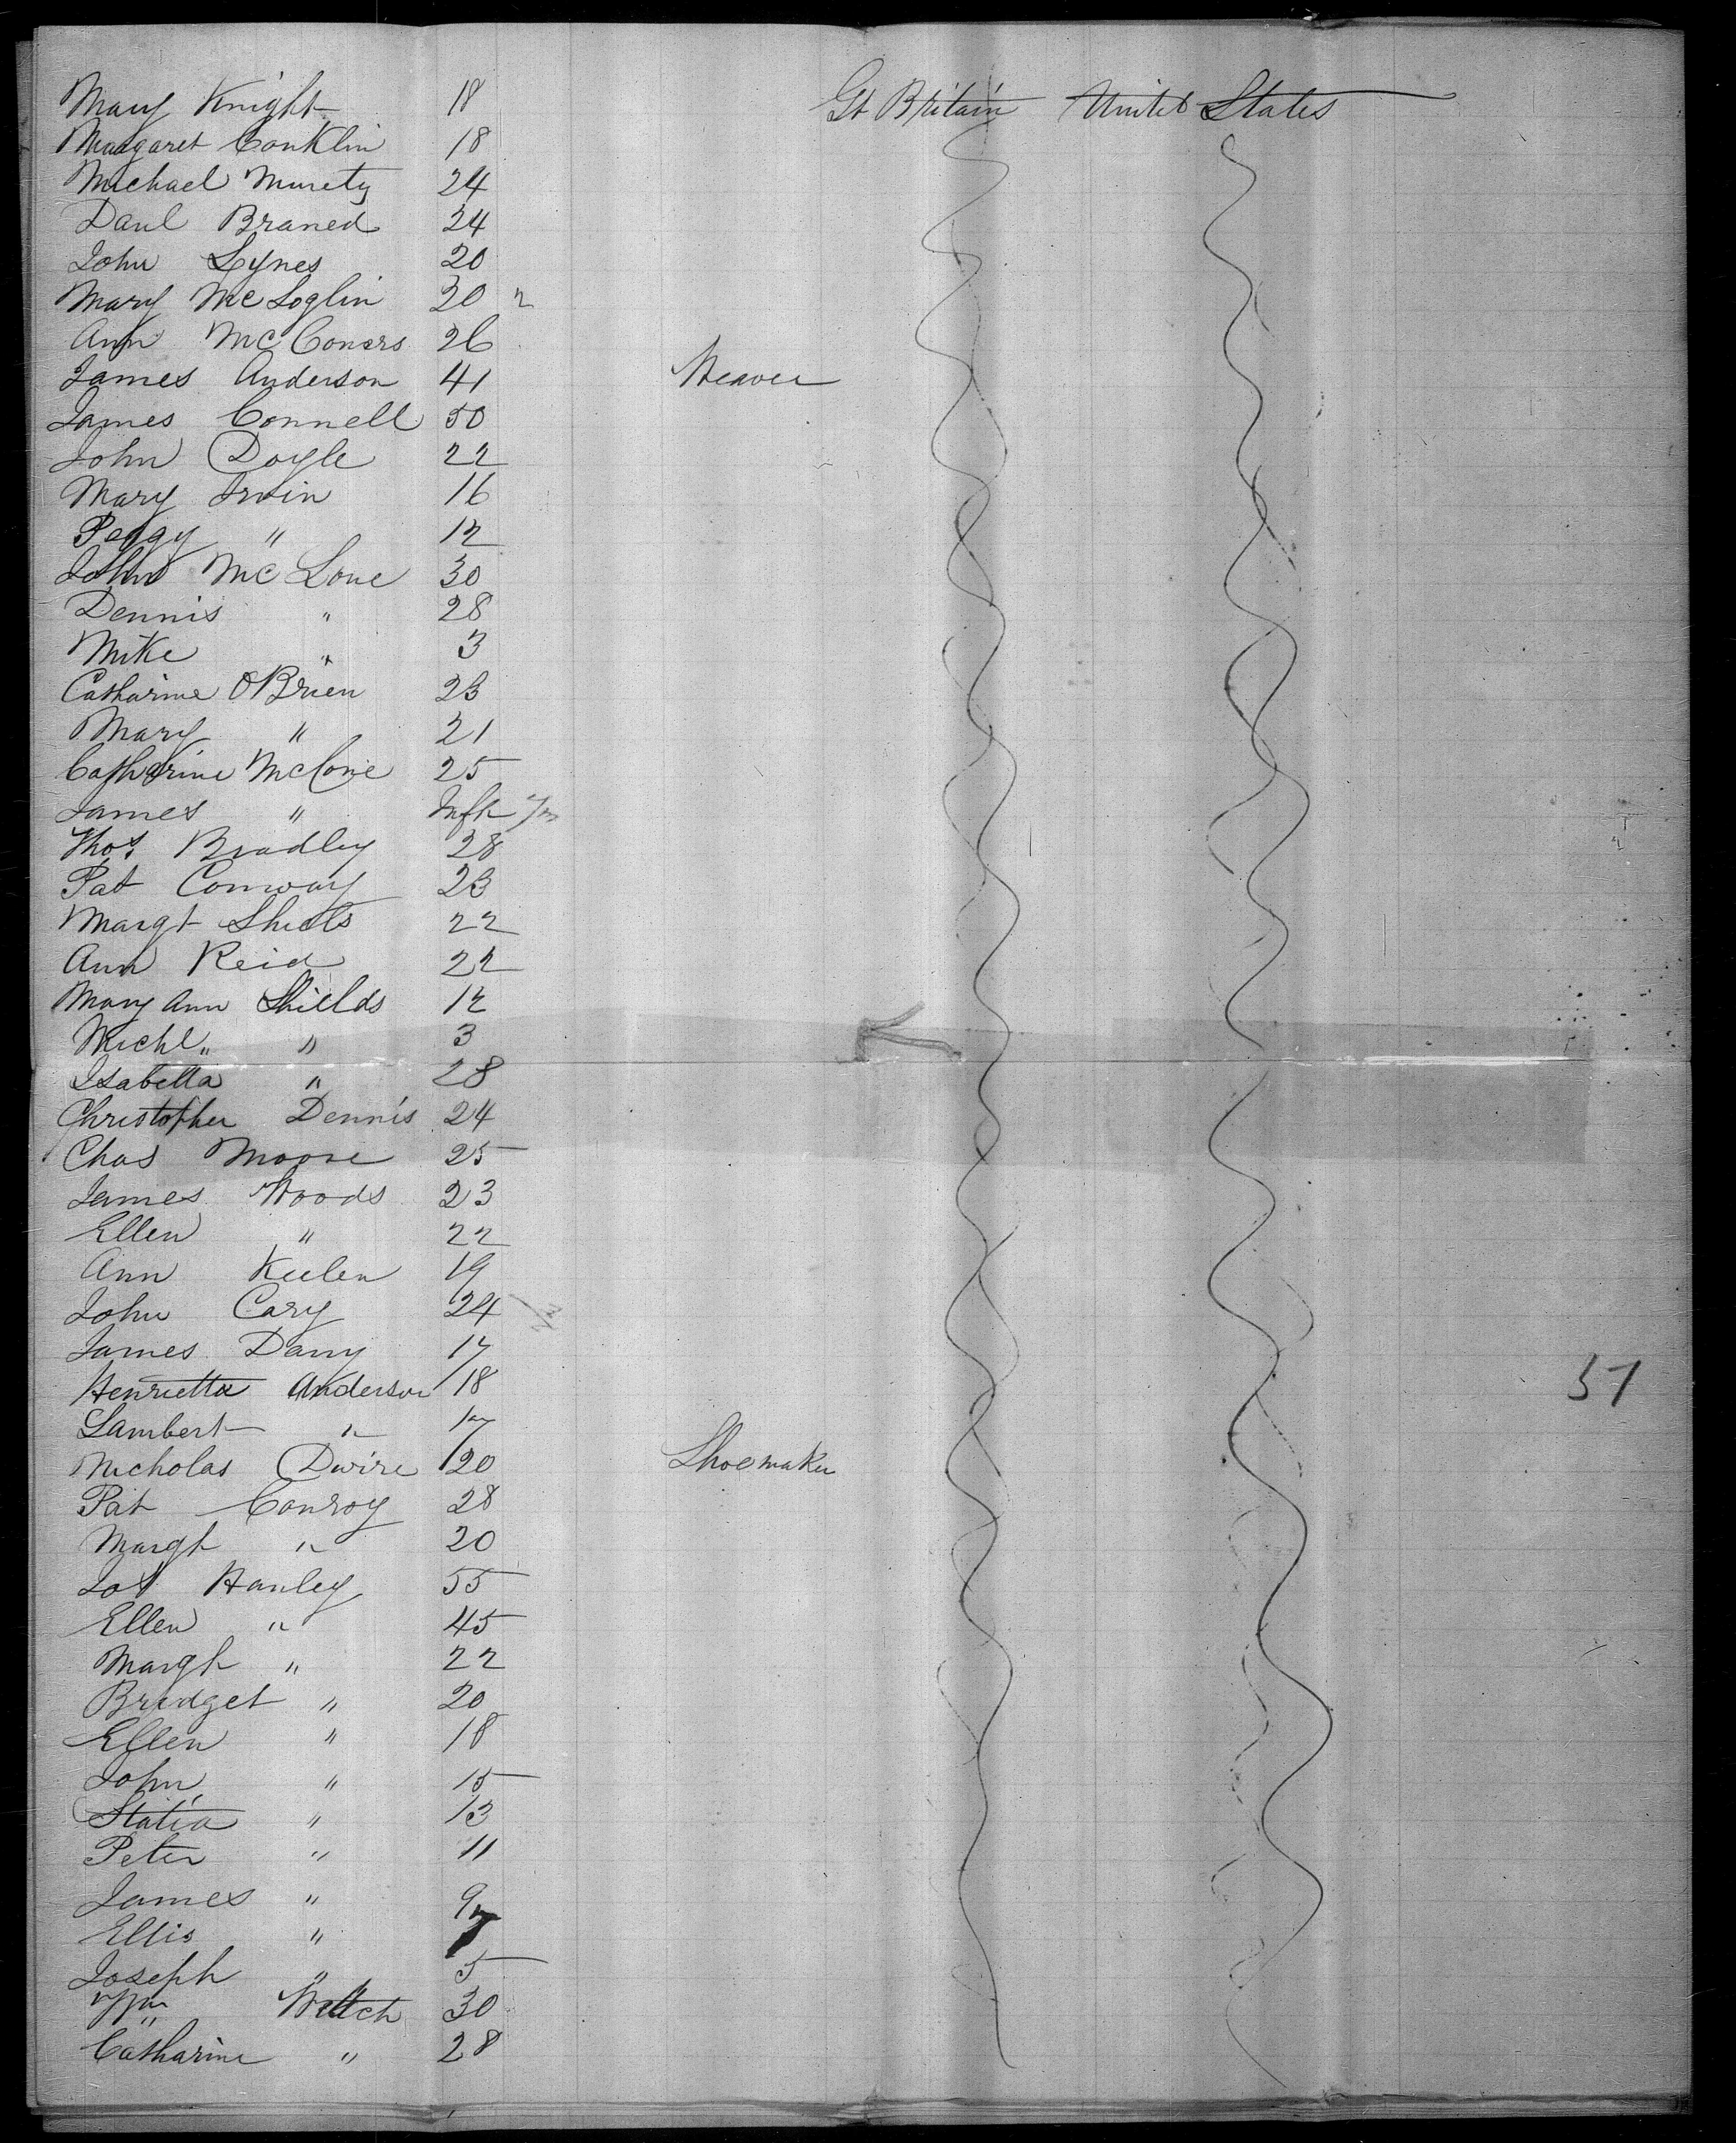 Mary Knight 18 Gt Britain United States
Margaret Conklin 18
Michael Murety 24
Danl Braned 24
John Lynes 20
Mary McLoglin 30
Ann McConers 26
James Anderson 41 Weaver
James Connell 50
John Doyle 22
Mary Irvin 16
Peggy " 12
John McLone 30
Dennis " 28
Mike " 3
Catharine OBrien 23
Mary " 21
Catharine McCone 25
James " Inft
Thos. Bradley 28
Pat Conway 23
Margt Shiels 22
Ann Reid 22
Mary Ann Shields 12
Michl " 3
Isabella " 28
Christopher Dennis 24
Chas Moore 25
James Woods 23
Ellen " 22
Ann Keelen 19
John Cary 24
James Dany 17
Henrietta Anderson 18
Lambert " 17
Nicholas Dwire 20 Shoemaker
Pat Conroy 28
Margt " 20
Jos Hanley 55
Ellen " 45
Margt " 22
Bridget " 20
Ellen " 18
John " 15
Statia " 13
Peter " 11
James " 9
Ellis " 7
Joseph " 5
Wm Weltch 30
Catharine " 28